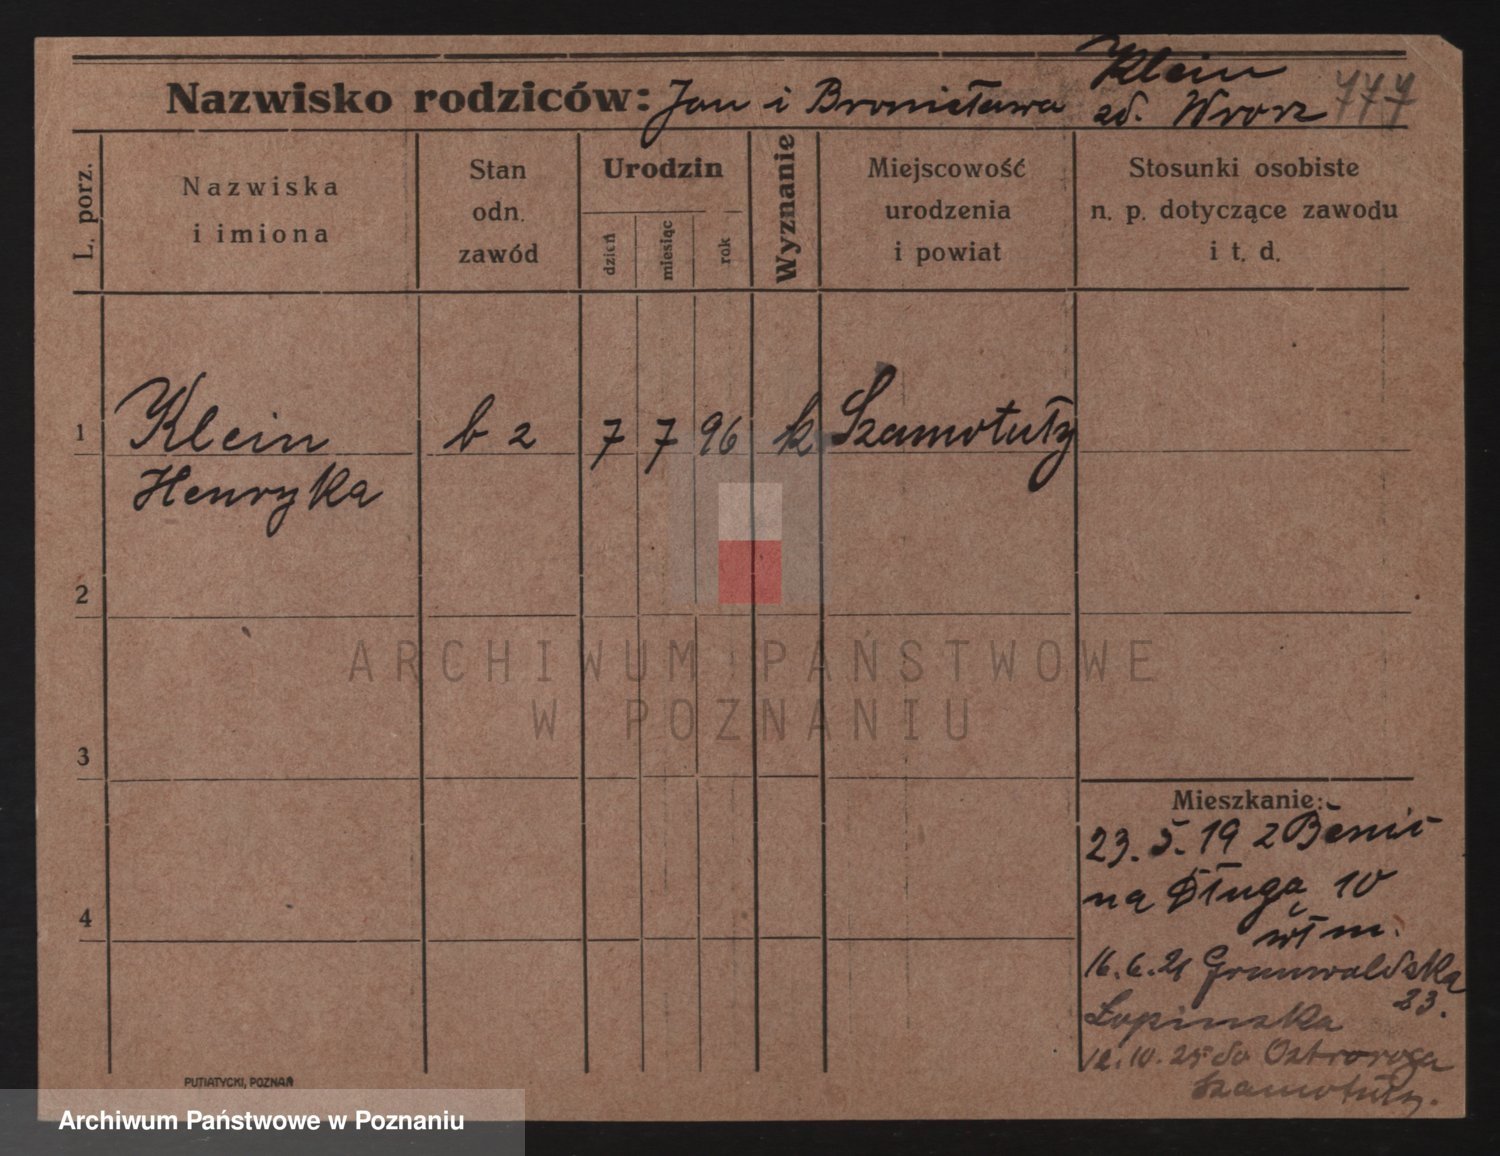 Klein
Nazwisko rodziców: Jan i Bronisława zd. Wrorz 777
L. porz.
Nazwiska
i imiona
Stan
odn.
zawód
Urodzin
dzień
miesiąc
rok
Wyznanie
Miejscowość
urodzenia
i powiat
Stosunki osobiste
n. p. dotyczące zawodu
i t. d.
1 Klein b z 7 7 96 k Szamotuły
Henryka
2
ARCHIWUM PAŃSTWOWE
W POZNANIU
3
Mieszkanie:
23. 5. 19 z
na Długą 10
wł m.
4
16. 6. 21 Grunwaldzka
23.
Łopinska
12. 10. 25 do Ostroroga
Szamotuły.
PUTIATYCKI, POZNAŃ
Archiwum Państwowe w Poznaniu